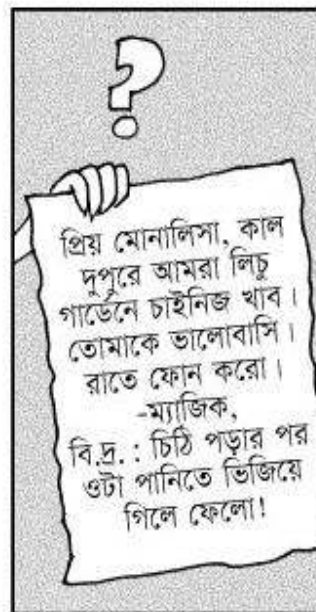 ?
প্রিয় মোনালিসা, কাল
দুপুরে আমরা লিচু
গার্ডেনে চাইনিজ খাব।
তোমাকে ভালোবাসি।
রাতে ফোন করো।
-ম্যাজিক,
বি.দ্র. : চিঠি পড়ার পর
ওটা পানিতে ভিজিয়ে
গিলে ফেলো!